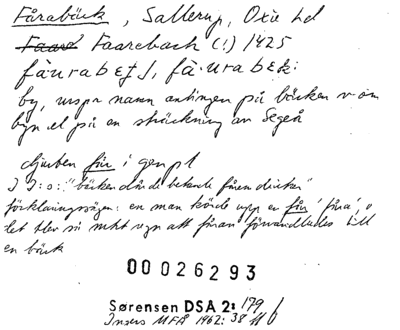 Fårabäck, Sallerup, Oxie hd
Faareback (!) 1425
by, urspr namn antingen på bäcken v om
byn el på en sträckning av Segeå
djurben får i gen pl
"bäcken där de betande fåren dricker"
förklaringssägen: en man körde upp en får 'fåra', o
det blev så mkt vgn att fåran förvandlades till
en bäck
00026293
Sørensen DSA 2: 179
MFÅ 1962: 38